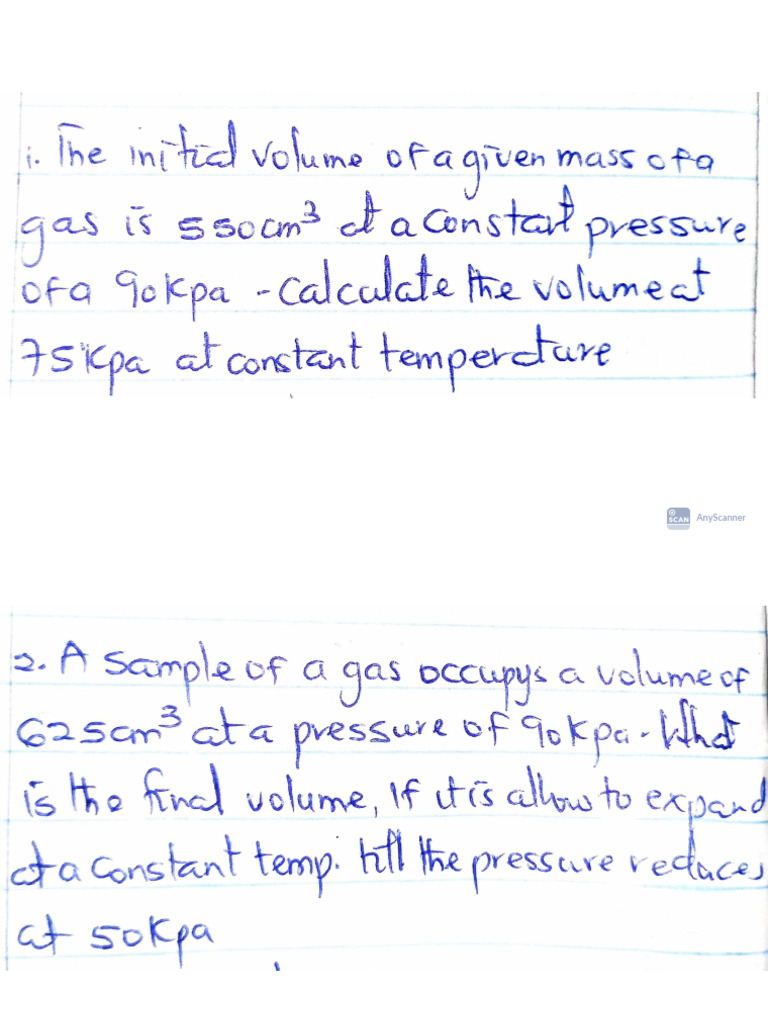 1. The initial volume of a given mass of a
gas is 550cm³ at a constant pressure
of a 90Kpa - Calculate the volume at
75Kpa at constant temperature
SCAN AnyScanner
2. A sample of a gas occupys a volume of
625cm³ at a pressure of 90Kpa. What
is the final volume, If it is allow to expand
at a constant temp. till the pressure reduces
at 50Kpa